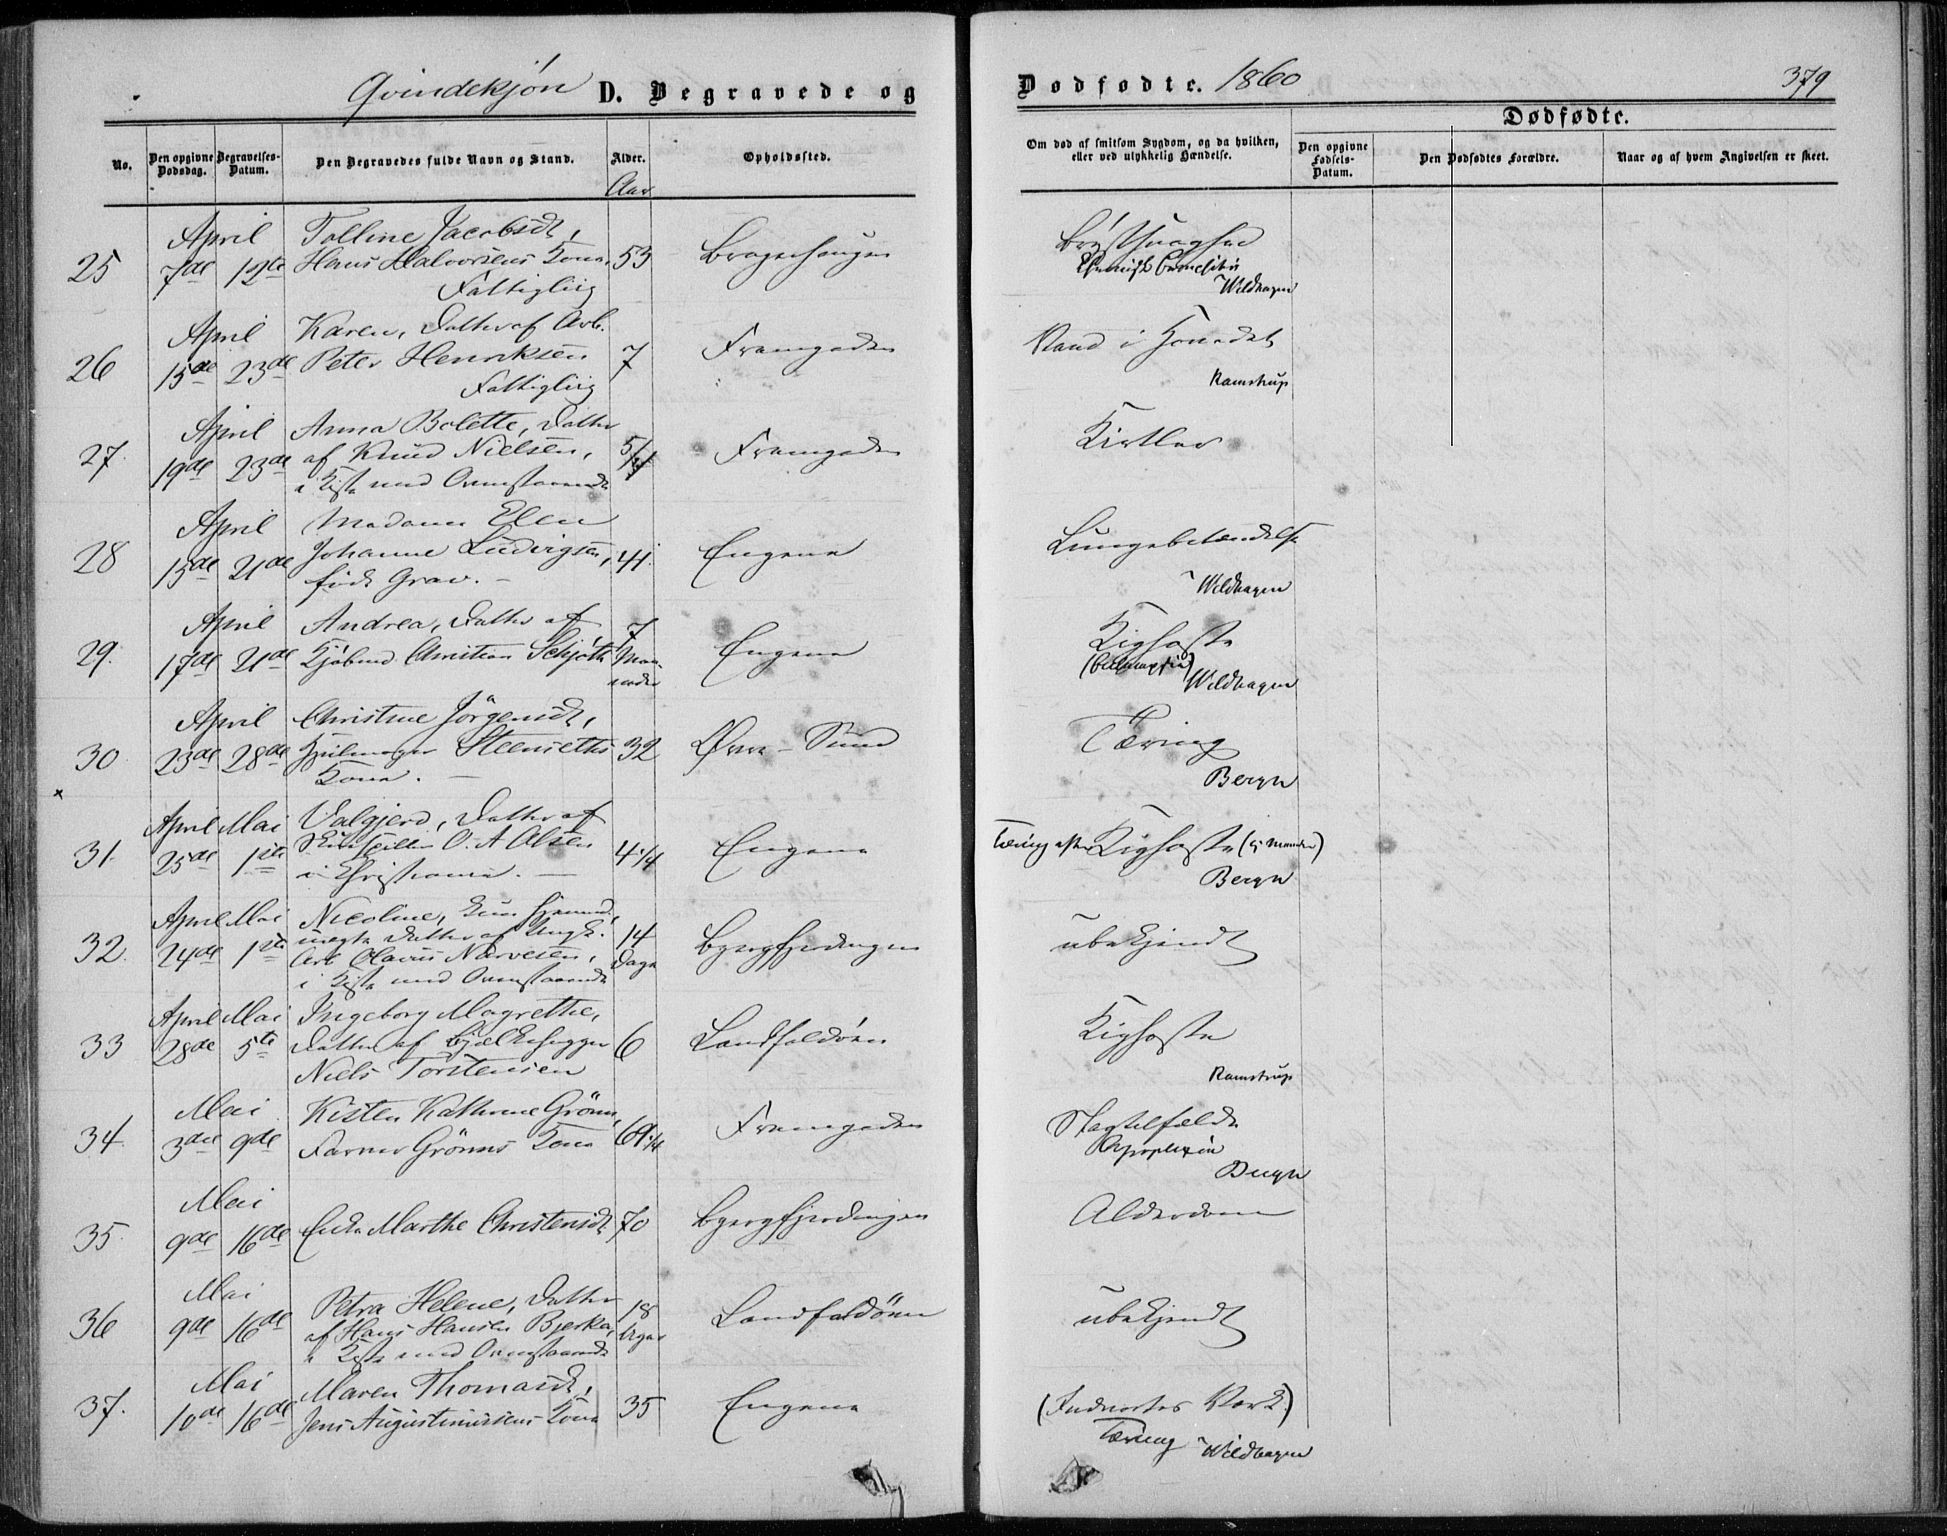 Qvindekjøn D. Begravede og
Dødfødte. 1860
379
No.
Den opgivne Dødsdag.
Begravelses-Datum.
Den Begravedes fulde Navn og Stand.
Alder.
Aar
Opholdssted.
Om død af smitsom Sygdom, og da hvilken, eller ved ulykkelig Hændelse.
Dødfødte.
Den opgivne Fødsels-Datum.
Den Dødfødtes Forældre.
Naar og af hvem Angivelsen er skeet.
25
April
7de 12te
Jacobsdt,
Hans Halvorsens Kone,
Fattiglig
53
Bragerhaugen
Brystsvaghed
Wildhagen
26
April
15de 23de
Karen, Datter af Arb.
Peter Henriksen
Fattiglig
7
Framgaden
Vand i Hovedet
Ramstrup
27.
April
19de 23de
Anna Bolette, Datter
af Knud Nielsen,
i Kiste med Ovenstaaende
Framgaden
Kirtler
28
April
15de 21de
Madame Elen
Johanne Ludvigsen,
født Grav.
41.
Engene
Lungebetændelse
Wildhagen
29.
April
17de 21de
Andrea, Datter af
Kjøbmd Christian Schjøth
7
Maaneder
Engene
Kighoste
Wildhagen
30
April
23de 28de
Christine Jörgensdt,
Hjulmager Steenseths
Kone.
32
Øvre-Sund
Tæring
Bergn
31.
April Mai
25de 1ste
Valgjerd, Datter af
O. A Olsen
i Christiania.
4 1/4
Engene
Tæring efter Kighoste
Bergn
32.
April Mai
24de 1ste
Nicoline,
uægte Datter af Ungk.
Arb Olavus Narvesen,
i Kiste med Ovenstaaende
14
Dage
Bjergfjerdingen
ubekjendt
33
April Mai
28de 5te
Ingeborg Magrethe,
Datter af Bjelkehugger
Niels Torstensen
6
Landfaldøen
Kighoste
Ramstrup
34.
Mai
3die 9de
Kisten Kathrine Grönn,
Farver Grönns Kone
Framgaden
Slagtilfælde
Apoplexin
35.
Mai
9de 16de
Enke Marthe Christensdt
70
Bjergfjerdingen
Alderdom
36
Mai
9de 16de
Petra Helene, Datter
af Hans Hansen Bjerka,
i Kiste med Ovenstaaende
18
Uger
Landfaldöen
ubekjendt
37.
Mai
10de 16de
Maren Thomasdt,
Jens Augustinussens Kone
35
Engene
(Indvortes Værk)
Tæring Wildhagen